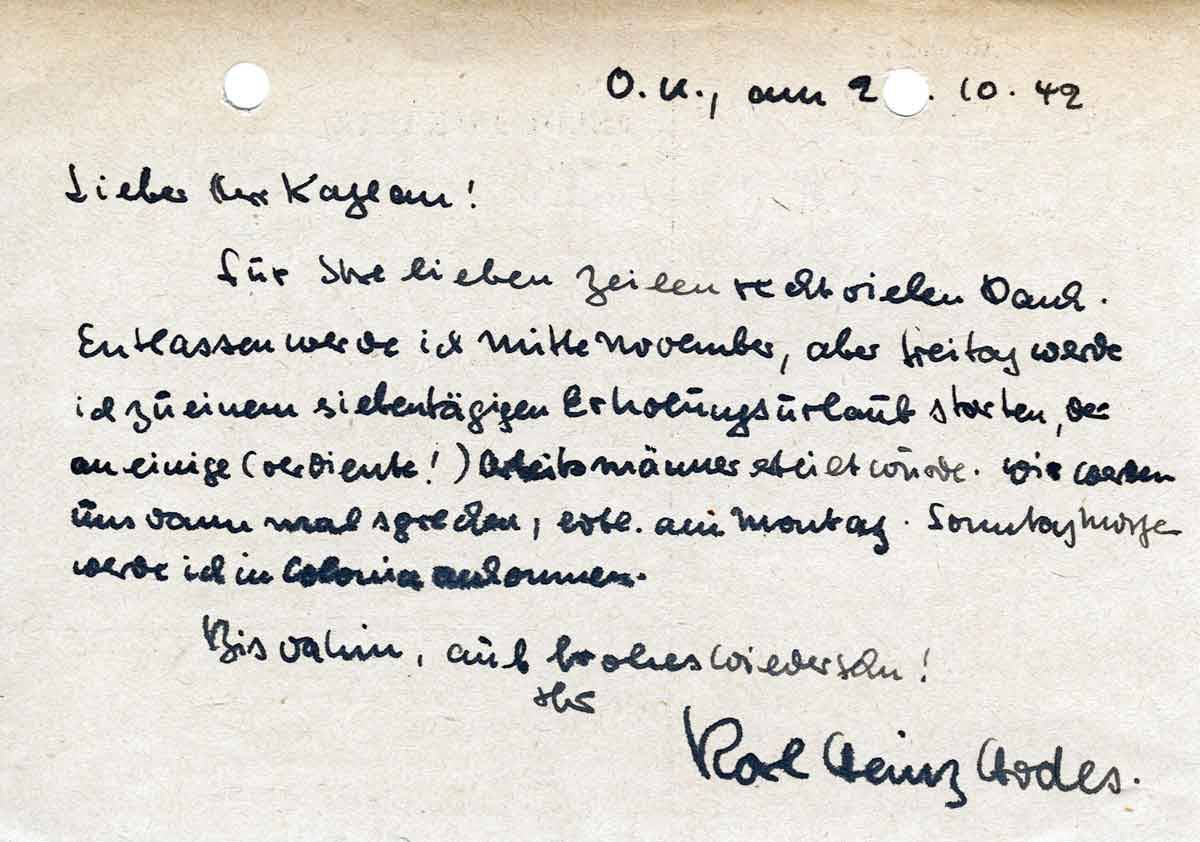 O.U., am 2 . 10. 42
Lieber Herr Kaplan!
Für Ihre lieben Zeilen recht vielen Dank.
Entlassen werde ich Mitte November, aber Freitag werde
ich zu einem siebentägigen Erholungsurlaub starten, der
an einige (verdiente!) Arbeitsmänner erteilt wurde. Wir werden
uns dann mal sprechen, evtl. am Montag. Sonntag Morgen
werde ich in Colonia ankommen.
Bis dahin, auf frohes Wiedersehn!
Ihr
Karl Heinz Hodes.